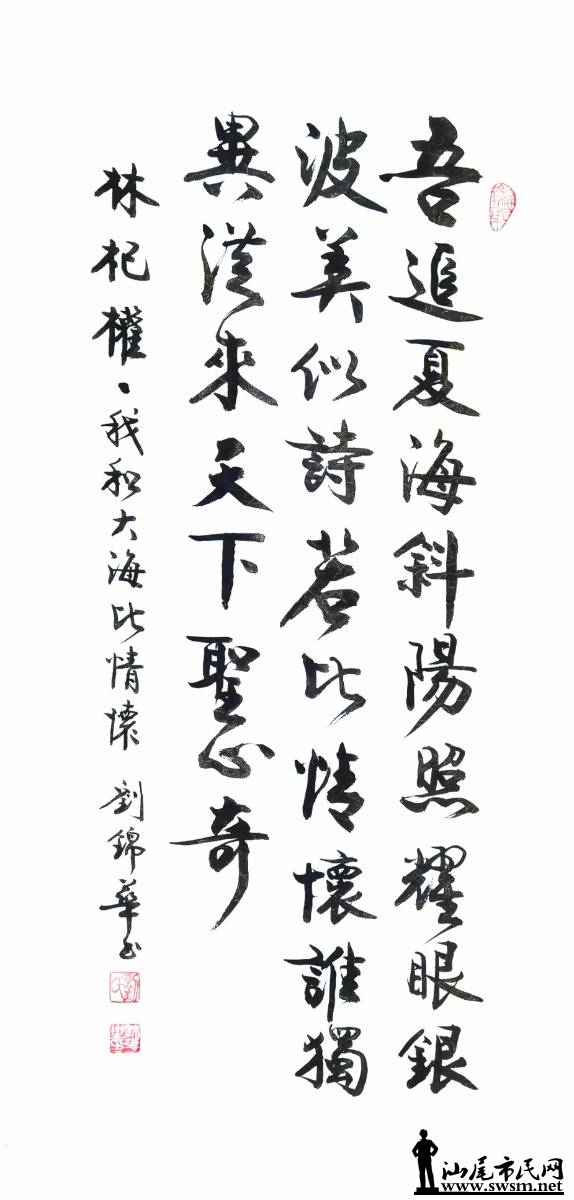 吾追夏海斜陽照耀眼銀
波美似詩若比情懷誰獨
異從來天下聖心奇
林杞權、我和大海比情懷 劉錦華书
汕尾市民网
www.swsm.net